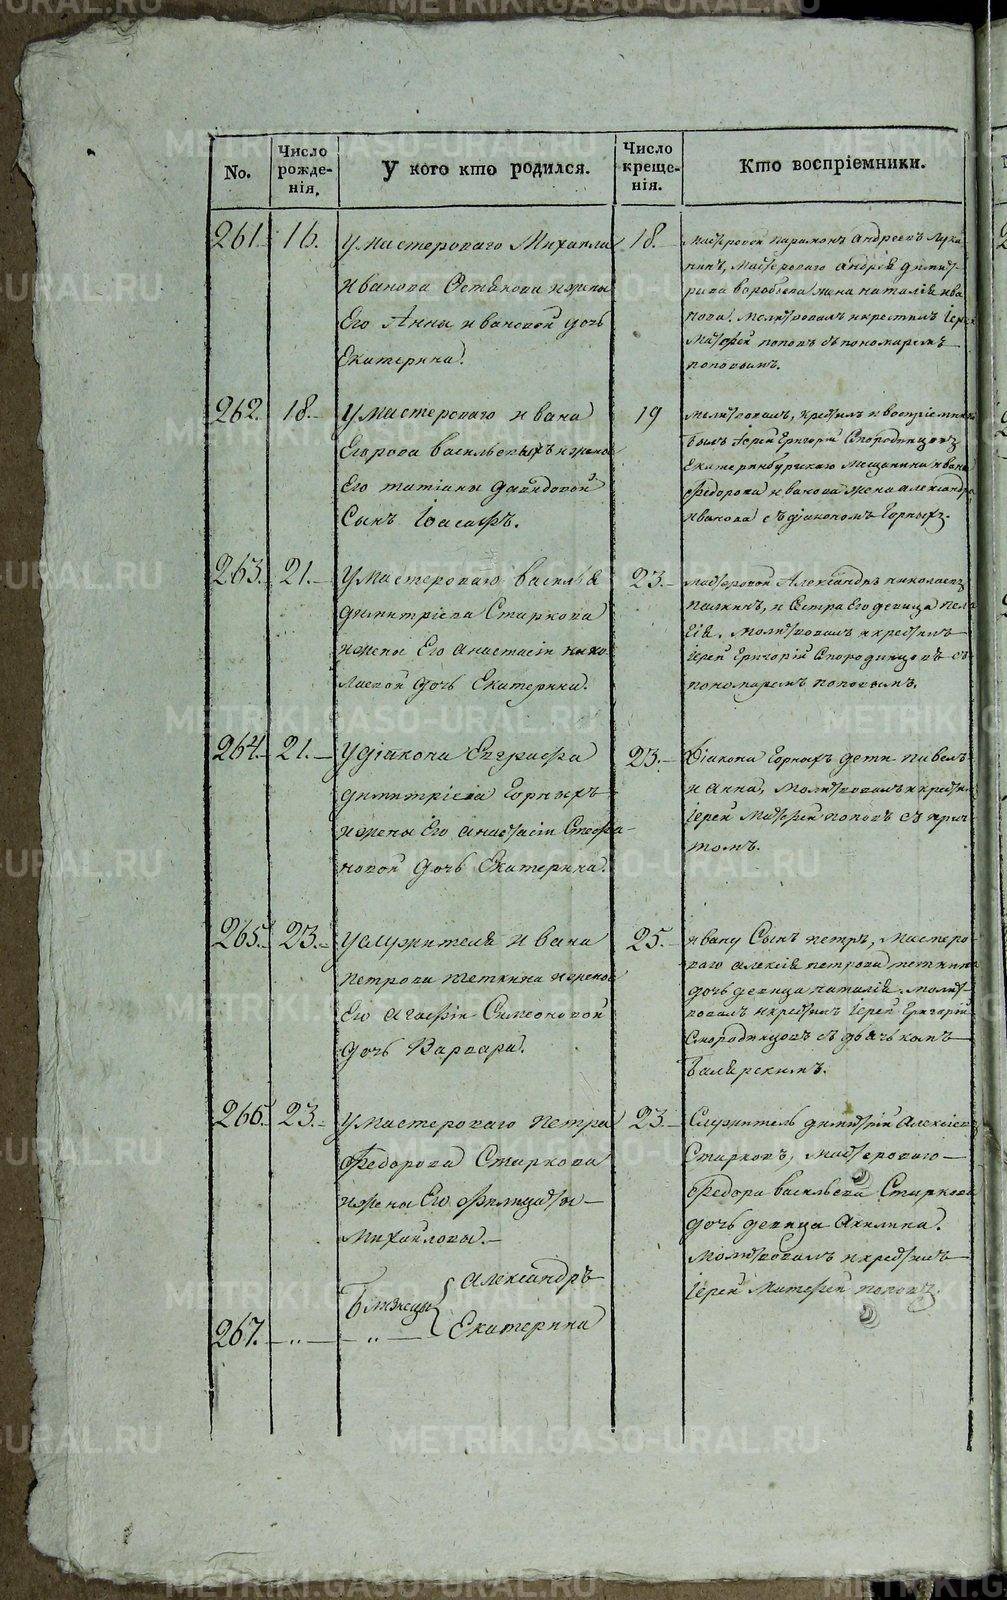 No.
Число рожде-нія.
У кого кто родился.
Число креще-нія.
Кто воспріемники.
261. 16.
У мастероваго Михаила
Иванова Остякова и жены
Его Анны Ивановой дочь
Екатерина.
18.
Мастеровой Парамонъ Андреевъ Лука
нинъ, Мастероваго Андрея Димит-
рива Воробьева жена Наталія Ива
нова. Молитвовалъ и крестилъ Іерей
Матфей Поповъ съ пономаремъ
Поповымъ.
262. 18.
У мастероваго Ивана
Егорова Васильевыхъ и жены
Его Татіаны Давидовой
Сынъ Іоасафъ.
19
Молитвовалъ, крестилъ и воспріемник
былъ Іерей Григорій Смородинцовъ
Екатеринбургскаго Мещанина Ивана
Федорова Иванова жена Александра
Иванова съ діакономъ Горныхъ.
263. 21.
У мастероваго Василья
Димитріева Старкова
и жены Его Анастасіи Нико
лаевой дочь Екатерина.
23.
Мастеровой Александръ Николаевъ
и Сестра Его девица Пела
гія. Молитвовалъ и крестилъ
Іерей Григорій Смородинцовъ съ
пономаремъ Поповымъ.
264. 21.
У діакона Евграфа
Димитріева Горныхъ
и жены Его Анастасіи Стефа-
новой дочь Екатерина.
23.
Діакона Горныхъ дети Павелъ
и Анна, Молитвовалъ и крестил
Іерей Матфей Поповъ съ прич
томъ.
265. 23.
У служителя Ивана
Петрова Теткина и жены
Его Агафіи Симеоновой
дочь Варвара.
25.
Ивану Сынъ Петръ, Мастеро
ваго Алексія Петрова Теткина
дочь девица Наталія. Молит-
вовалъ и крестилъ Іерей Григорій
Смородинцовъ съ дьячкомъ
266. 23.
У мастероваго Петра
Федорова Старкова
и жены Его Филицаты
Михайловы.
Близнецы { Александръ
267. „ „ Екатерина
23.
Служитель Димитрій Алексіевъ
Старковъ, Мастероваго
Федора Васильева Старкова
дочь девица Акилина.
Молитвовалъ и крестилъ
Іерей Матфей Поповъ.
METRIKI.GASO-URAL.RU